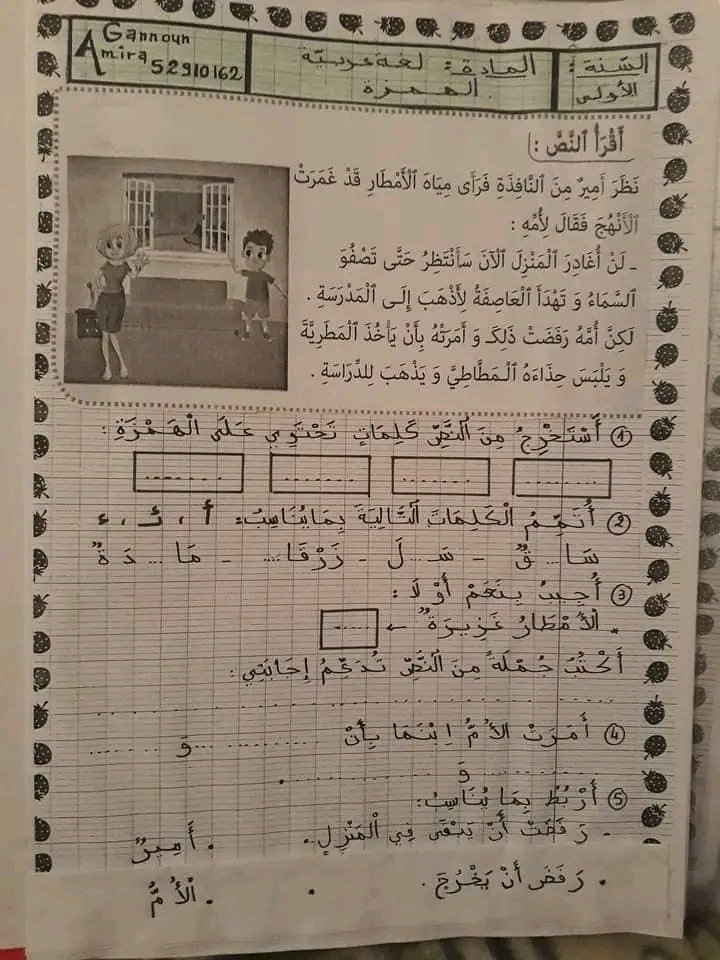 السّنة : الأولى
المادة : لغة عربيّة
الهمزة
Gannoun
Amira 52910162
أَقْرَأُ النَّصَّ :
نَظَرَ أَمِيرٌ مِنَ النَّافِذَةِ فَرَأَى مِيَاهَ الْأَمْطَارِ قَدْ غَمَرَتْ
الْأَنْهُجَ فَقَالَ لِأُمِّهِ :
ـ لَنْ أُغَادِرَ الْمَنْزِلَ الْآنَ سَأَنْتَظِرُ حَتَّى تَصْفُوَ
السَّمَاءُ وَ تَهْدَأَ الْعَاصِفَةُ لِأَذْهَبَ إِلَى الْمَدْرَسَةِ .
لَكِنَّ أُمَّهُ رَفَضَتْ ذَلِكَ وَ أَمَرَتْهُ بِأَنْ يَأْخُذَ الْمَطَرِيَّةَ
وَ يَلْبَسَ حِذَاءَهُ الْمَطَّاطِيَّ وَ يَذْهَبَ لِلدِّرَاسَةِ .
① أَسْتَخْرِجُ مِنَ النَّصِّ كَلِمَاتٍ تَحْتَوِي عَلَى الْهَمْزَةِ :
........ ........ ........ ........
② أُتَمِّمُ الْكَلِمَاتِ التَّالِيَةَ بِمَا يُنَاسِبُ: أ ، ئـ ، ء
سَا...قٌ - سَـ...لَ - زَرْقَا.... - مَا...دَةٌ
③ أُجِيبُ بِنَعَمْ أَوْ لَا :
. الْأَمْطَارُ غَزِيرَةٌ ← ......
أَكْتُبُ جُمْلَةً مِنَ النَّصِّ تُدَعِّمُ إِجَابَتِي :
..............................
④ أَمَرَتْ الأُمُّ اِبْنَهَا بِأَنْ .............. وَ ..........
.............. وَ .............. .
⑤ أَرْبُطُ بِمَا يُنَاسِبُ:
- رَفَضَتْ أَنْ يَبْقَى فِي الْمَنْزِلِ . . أَمِيرٌ
. رَفَضَ أَنْ يَخْرُجَ . . . الْأُمُّ